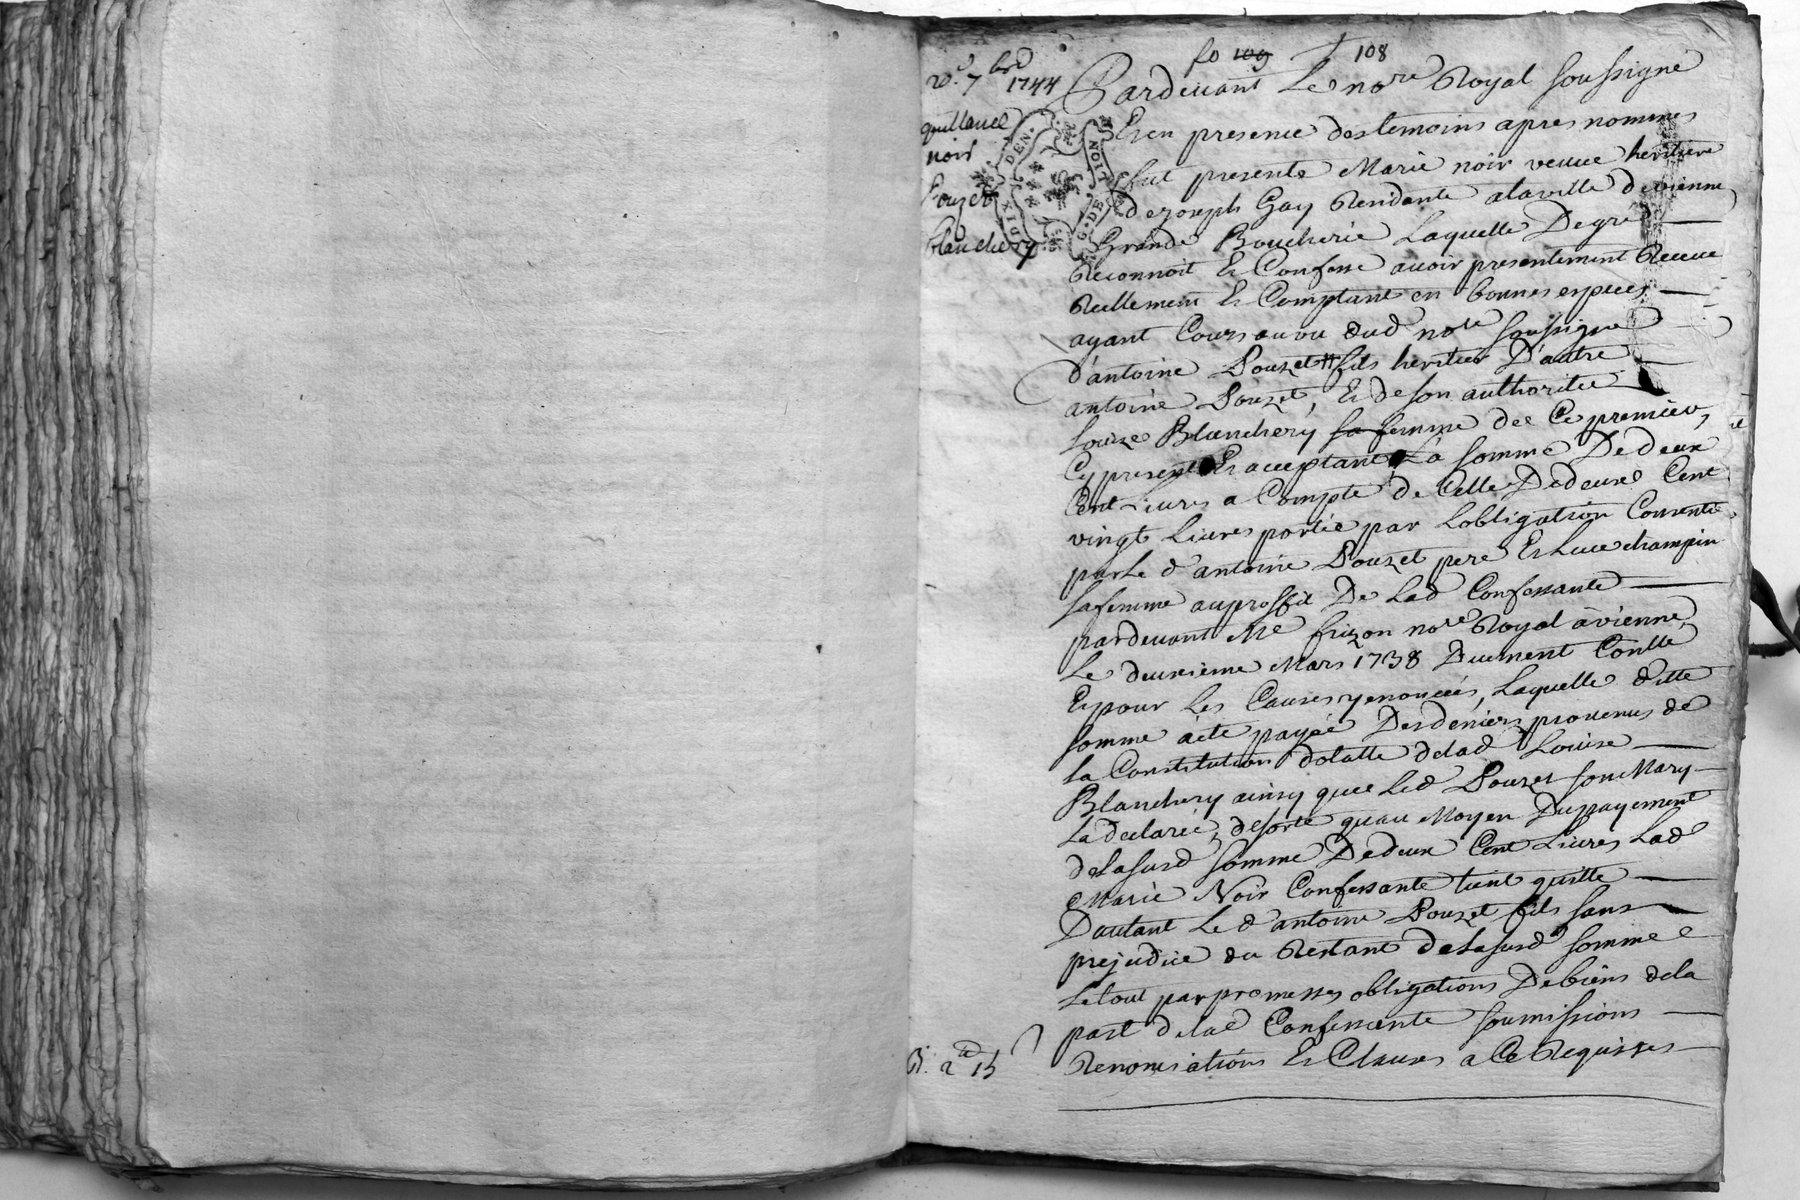 fo 109 108
20e 7bre 1744
quittance
noir
Pouzet
Blanchery
DIX DEN. G. DE NOIT
Pardevant Le nore Royal soussigné
Et en presence des temoins apres nommes
fut presente Marie noir veuve heritiere
de joseph Gay Rendante a la ville de vienne
Grande Boucherie Laquelle De gre
Reconnoit Et Confesse avoir presentement Receue
Reellement Et Comptant en bonnes especes
ayant Cours au vu dud nore soussigné
d'antoine Pouzet # fils heritier D'autre
antoine Pouzet, Et de son authoritée
Louize Blanchery sa femme dee Ce premier,
Cy present Et acceptant La somme De deux
Cent Livres a Compte de Celle De deuxe Cent
vingt Livres portée par Lobligation Consentie
par Le d antoine Pouzet pere Et Luce champin
sa femme au proffit De Lad Confessante
pardevant Me frizon nore Royal à vienne,
Le deuxieme Mars 1738 Duement Conllé
Et pour Les Causes y enoncées, Laquelle ditte
somme a été payée Des déniers provenus de
La Constitution dotalle de lad Louise
Blanchery ainsy que Led Pouzet son Mary
La declarée, de sorte quau Moyen Du payement
de La susd somme De deux Cent Livres Lad
Marie Noir Confessante tient quitte
Dautant Le d antoine Pouzet fils sans
prejudice du Restant de La susd somme
Le tout par promesses obligations De biens de la
part de lad Confessante soumissions
Renonciations Et Clauses a Ce Requises